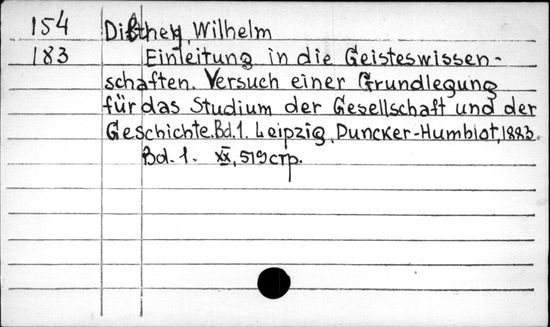 154 Dilthey, Wilhelm
183 Einleitung in die Geisteswissen-
schaften. Versuch einer Grundlegung
für das Studium der Gesellschaft und der
Geschichte. Bd. 1. Leipzig, Duncker-Humblot, 1883.
Bd. 1. XX, 519 стр.